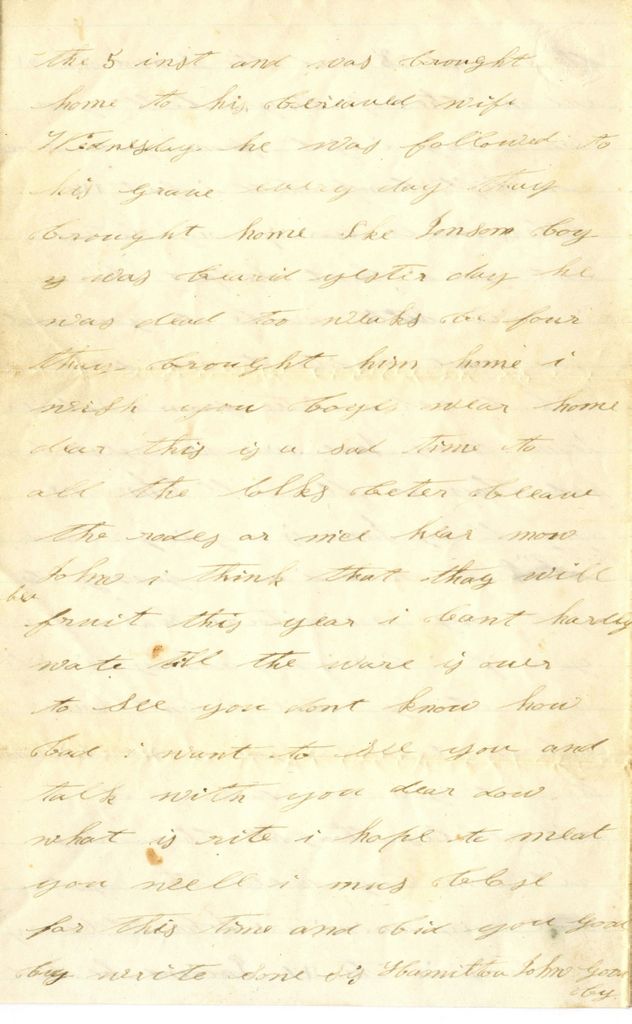 the 5 inst and was brought
home to his bereaved wife
Wednesday he was followed to
his grave every day thay
brought home Jonson boy
was buried yester day he
was dead too weaks be four
thay brought him home i
wish you boys wear home
dear this is a sad time to
all the
the rodes ar nice hear now
John i think that thay will
be
fruit this year i cant hardly
wate till the ware is over
to see you dont know how
bad i want to see you and
talk with you dear dow
what is rite i hope to meat
you well i mus close
for this time and bid you good
by write sone Hamilton John Good
by